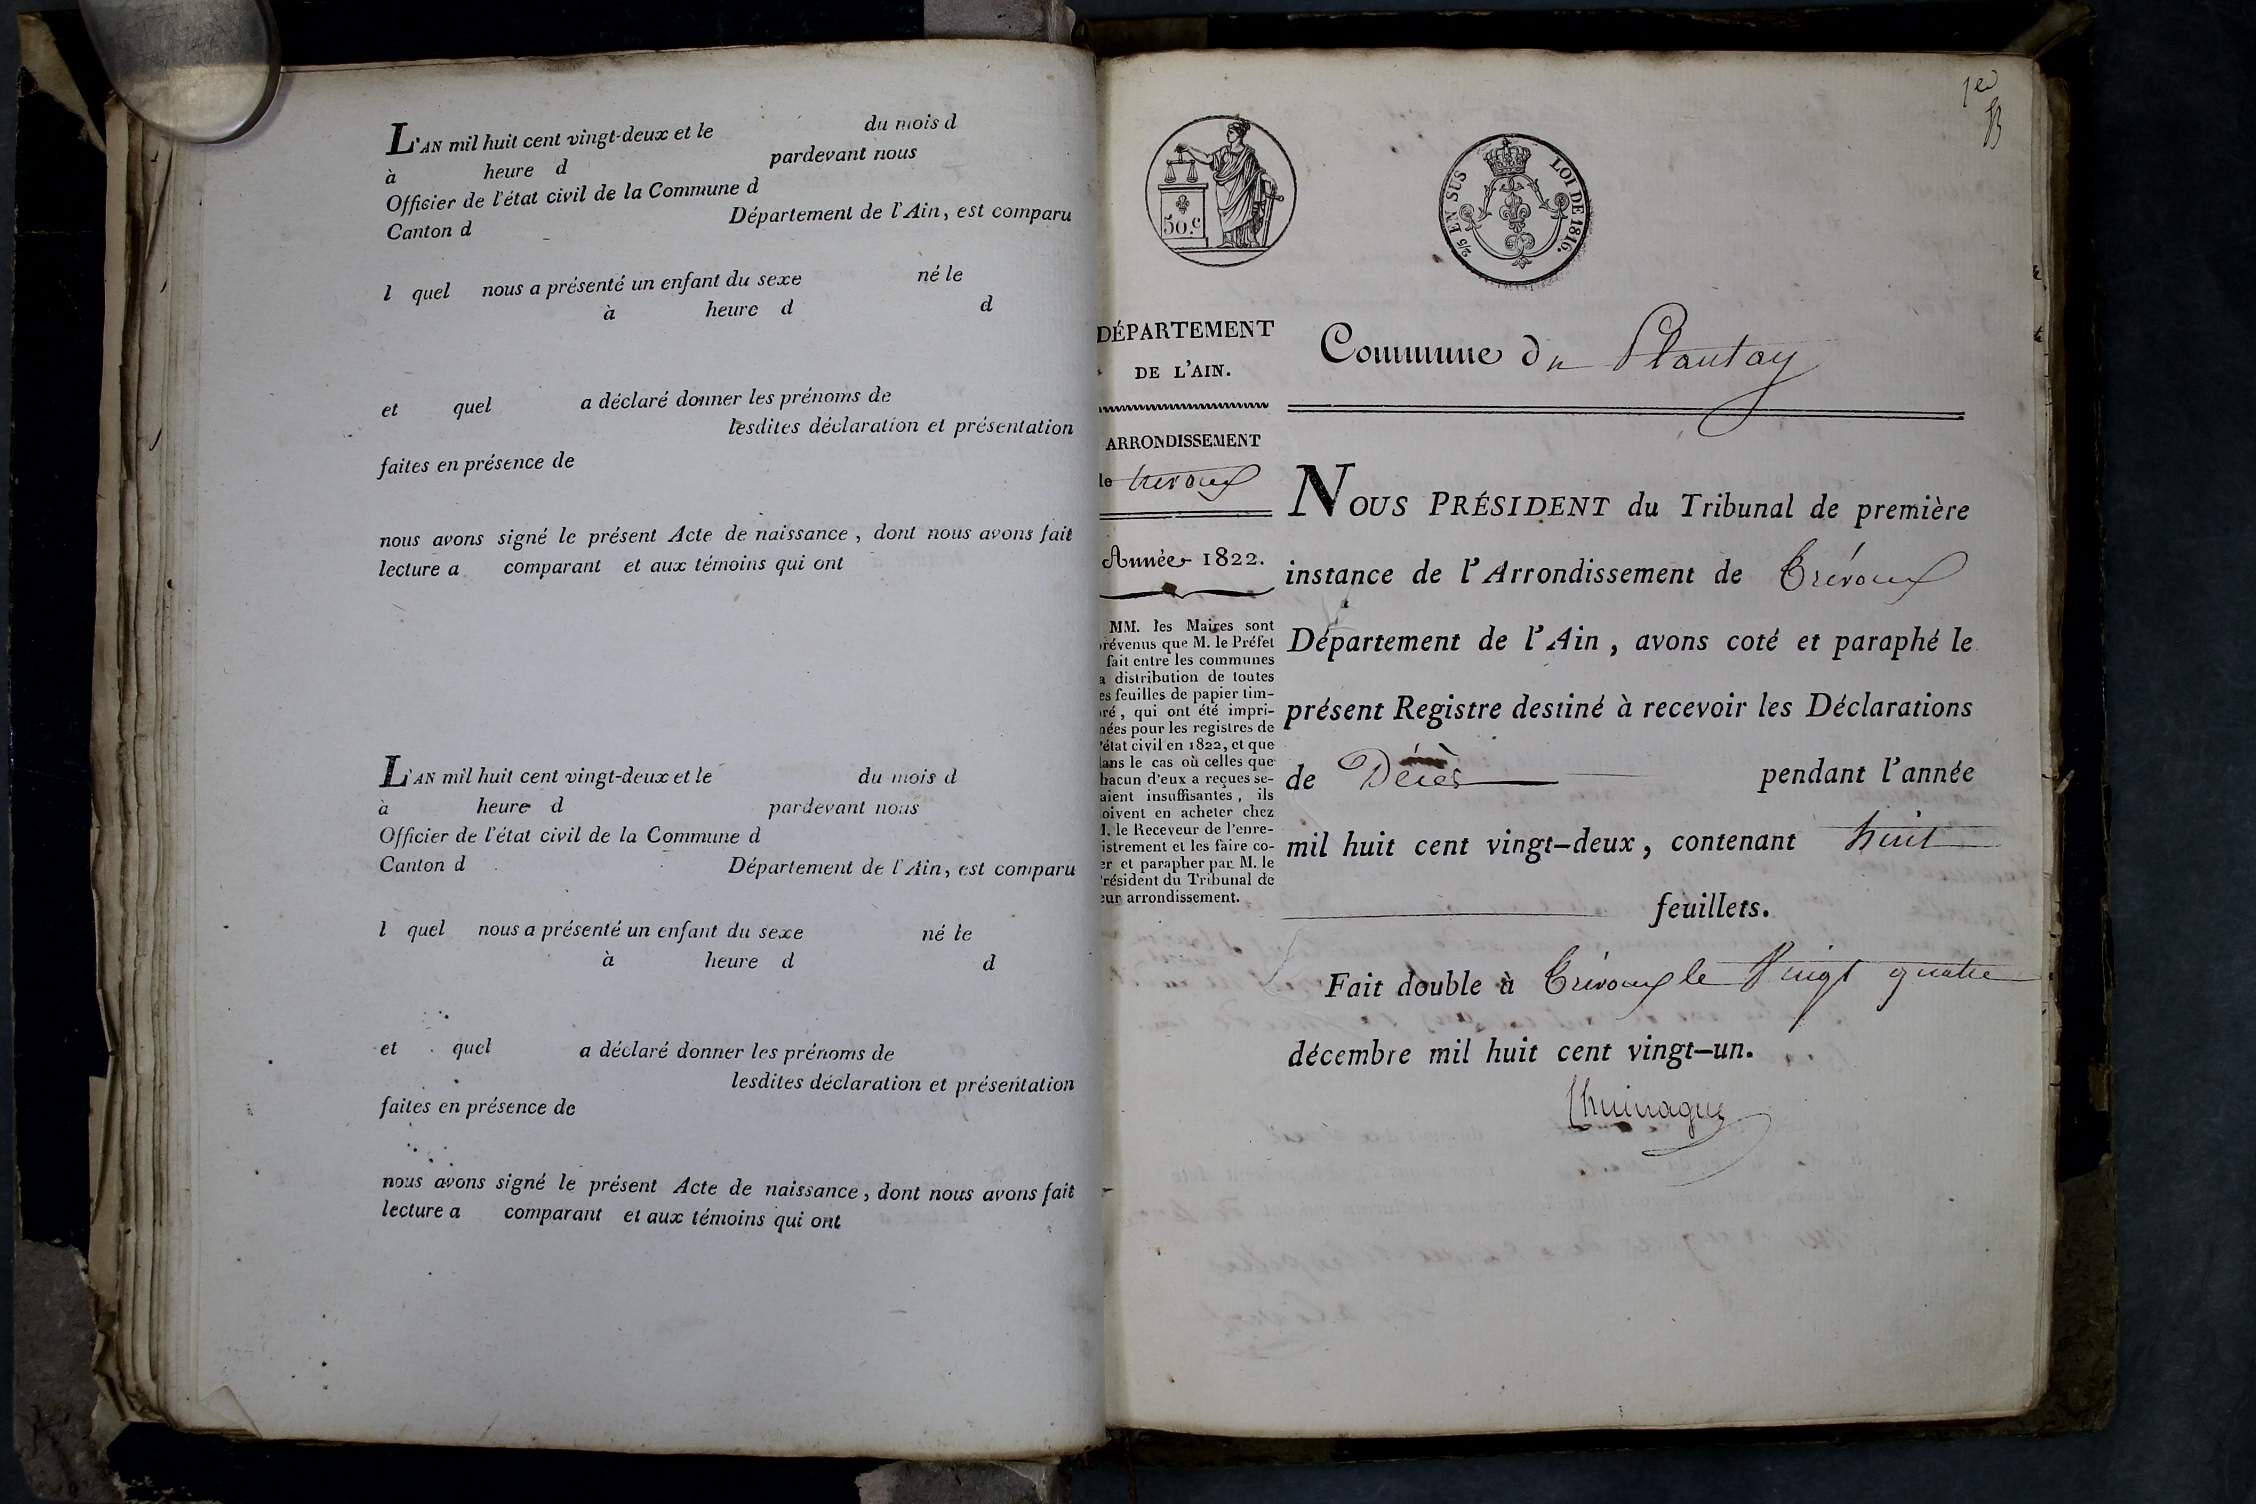 L'AN mil huit cent vingt-deux et le du mois d
à heure d pardevant nous
Officier de l'état civil de la Commune d
Canton d Département de l'Ain, est comparu
l quel nous a présenté un enfant du sexe né le
à heure d d
et quel a déclaré donner les prénoms de
lesdites déclaration et présentation
faites en présence de
nous avons signé le présent Acte de naissance, dont nous avons fait
lecture a comparant et aux témoins qui ont
L'AN mil huit cent vingt-deux et le du mois d
à heure d pardevant nous
Officier de l'état civil de la Commune d
Canton d Département de l'Ain, est comparu
l quel nous a présenté un enfant du sexe né le
à heure d d
et quel a déclaré donner les prénoms de
lesdites déclaration et présentation
faites en présence de
nous avons signé le présent Acte de naissance, dont nous avons fait
lecture a comparant et aux témoins qui ont
1er
50.c
2/5 EN SUS LOI DE 1816.
DÉPARTEMENT
DE L'AIN.
ARRONDISSEMENT
de trevoux
Année 1822.
MM. les Maires sont
révenus que M. le Préfet
fait entre les communes
a distribution de toutes
es feuilles de papier tim-
ré, qui ont été impri-
ées pour les registres de
'état civil en 1822, et que
ans le cas où celles que
hacun d'eux a reçues se-
aient insuffisantes, ils
oivent en acheter chez
M. le Receveur de l'enre-
istrement et les faire co-
er et parapher par M. le
Président du Tribunal de
eur arrondissement.
Commune du Plantay
NOUS PRÉSIDENT du Tribunal de première
instance de l'Arrondissement de Trévoux
Département de l'Ain, avons coté et paraphé le
présent Registre destiné à recevoir les Déclarations
de Décès pendant l'année
mil huit cent vingt-deux, contenant huit
feuillets.
Fait double à Trévoux le Vingt quatre
décembre mil huit cent vingt-un.